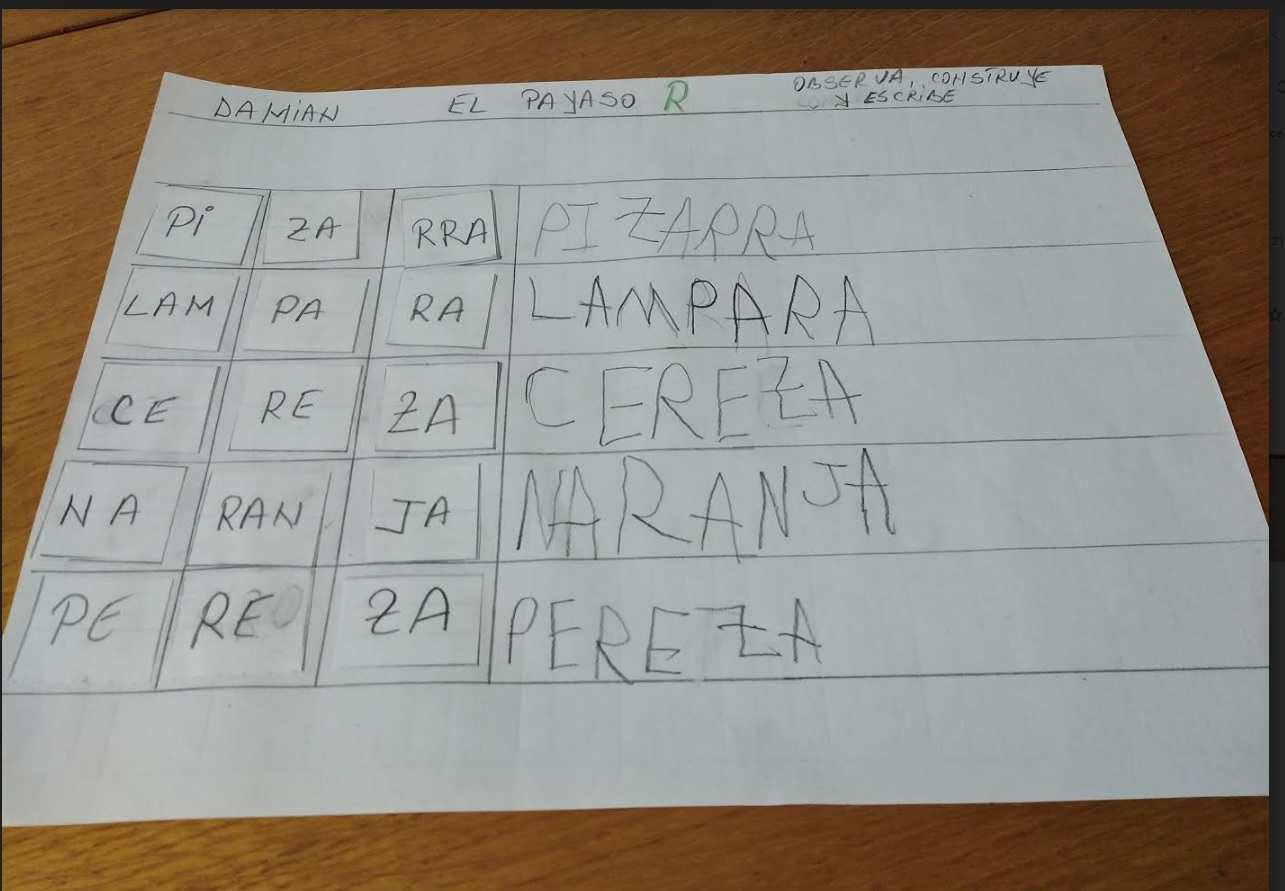 DAMIAN EL PAYASO R OBSERVA, CONSTRUYE
Y ESCRIBE
PI ZA RRA PIZARRA
LAM PA RA LAMPARA
CE RE ZA CEREZA
NA RAN JA NARANJA
PE RE ZA PEREZA